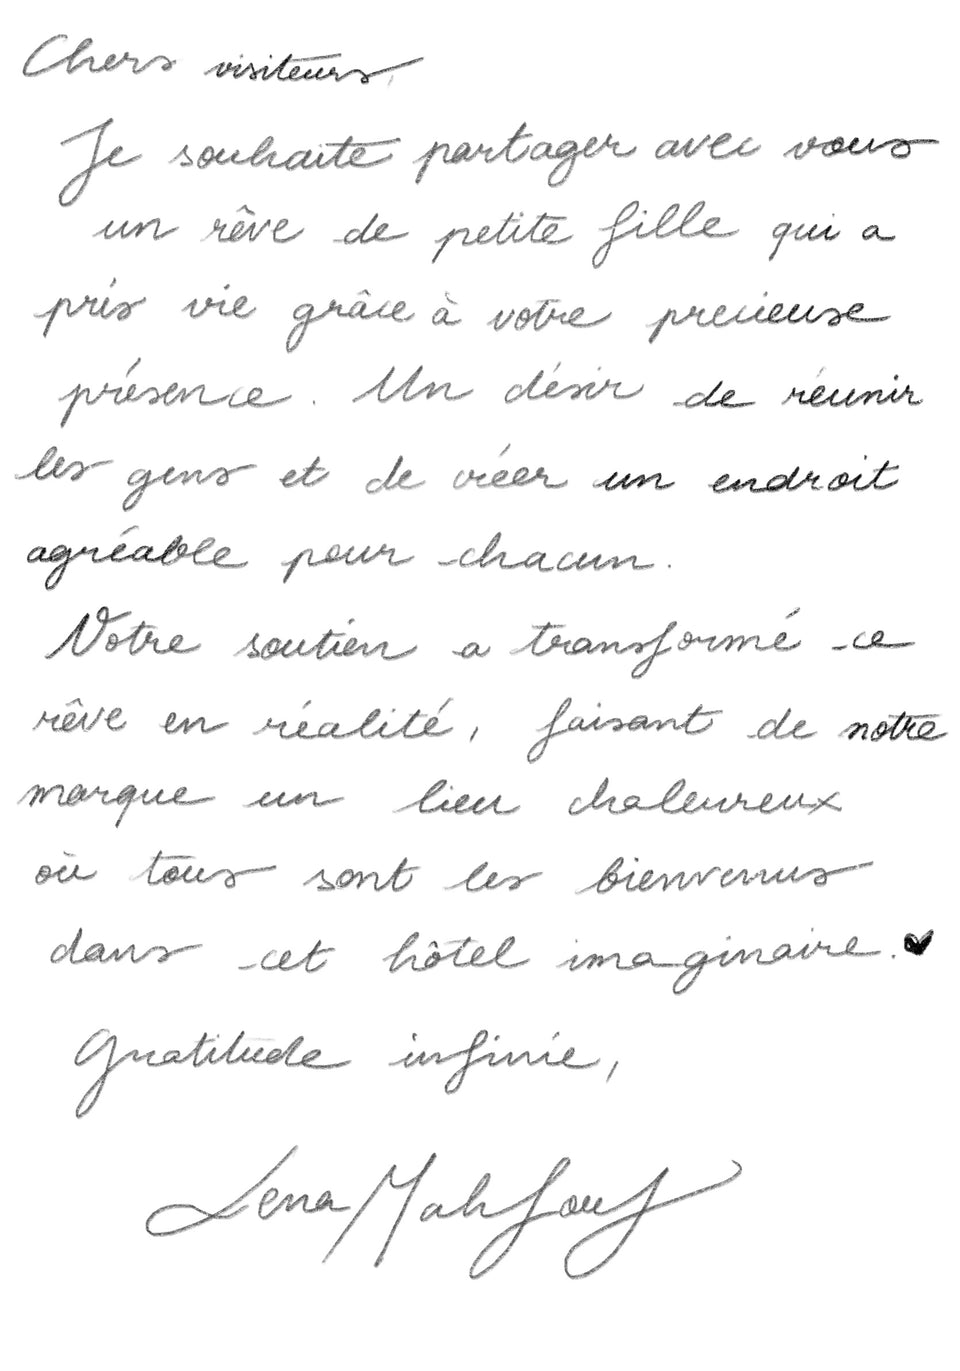 Chers visiteurs,
Je souhaite partager avec vous
un rêve de petite fille qui a
pris vie grâce à votre precieuse
présence. Un désir de réunir
les gens et de créer un endroit
agréable pour chacun.
Votre soutien a transformé ce
rêve en réalité, faisant de notre
marque un lieu chaleureux
où tous sont les bienvenus
dans cet hôtel imaginaire.
Gratitude infinie,
Lena Mahfouf